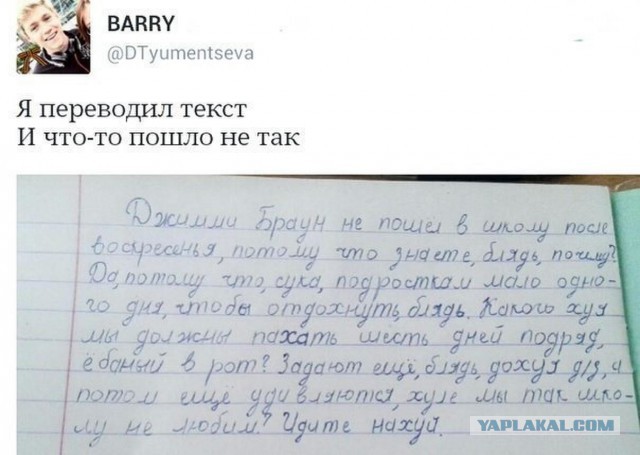 BARRY
@DTyumentseva
Я переводил текст
И что-то пошло не так
Джимми Браун не пошёл в школу после
воскресенья, потому что знаете, блядь, почему?
Да, потому что, сука, подросткам мало одно-
го дня, чтобы отдохнуть, блядь. Какого хуя
мы должны пахать шесть дней подряд,
ёбаный в рот? Задают ещё, блядь, дохуя д/з, а
потом ещё удивляются, хуле мы так шко-
лу не любим? Идите нахуй.
YAPLAKAL.COM